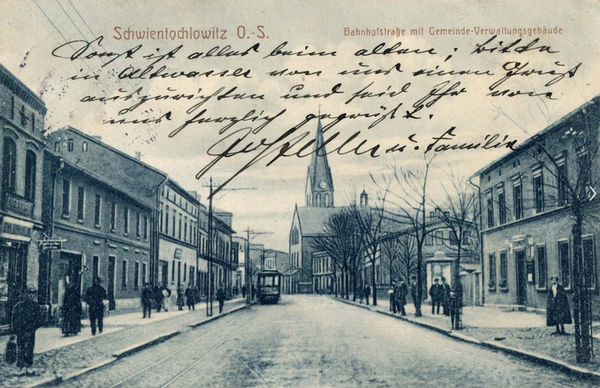 Schwientochlowitz O.-S.
Bahnhofstraße mit Gemeinde-Verwaltungsgebäude
Sonst ist alles beim alten; bitte
in Altwasser von uns einen Gruß
auszurichten und seid Ihr von
uns herzlich gegrüßt.
u. Familie